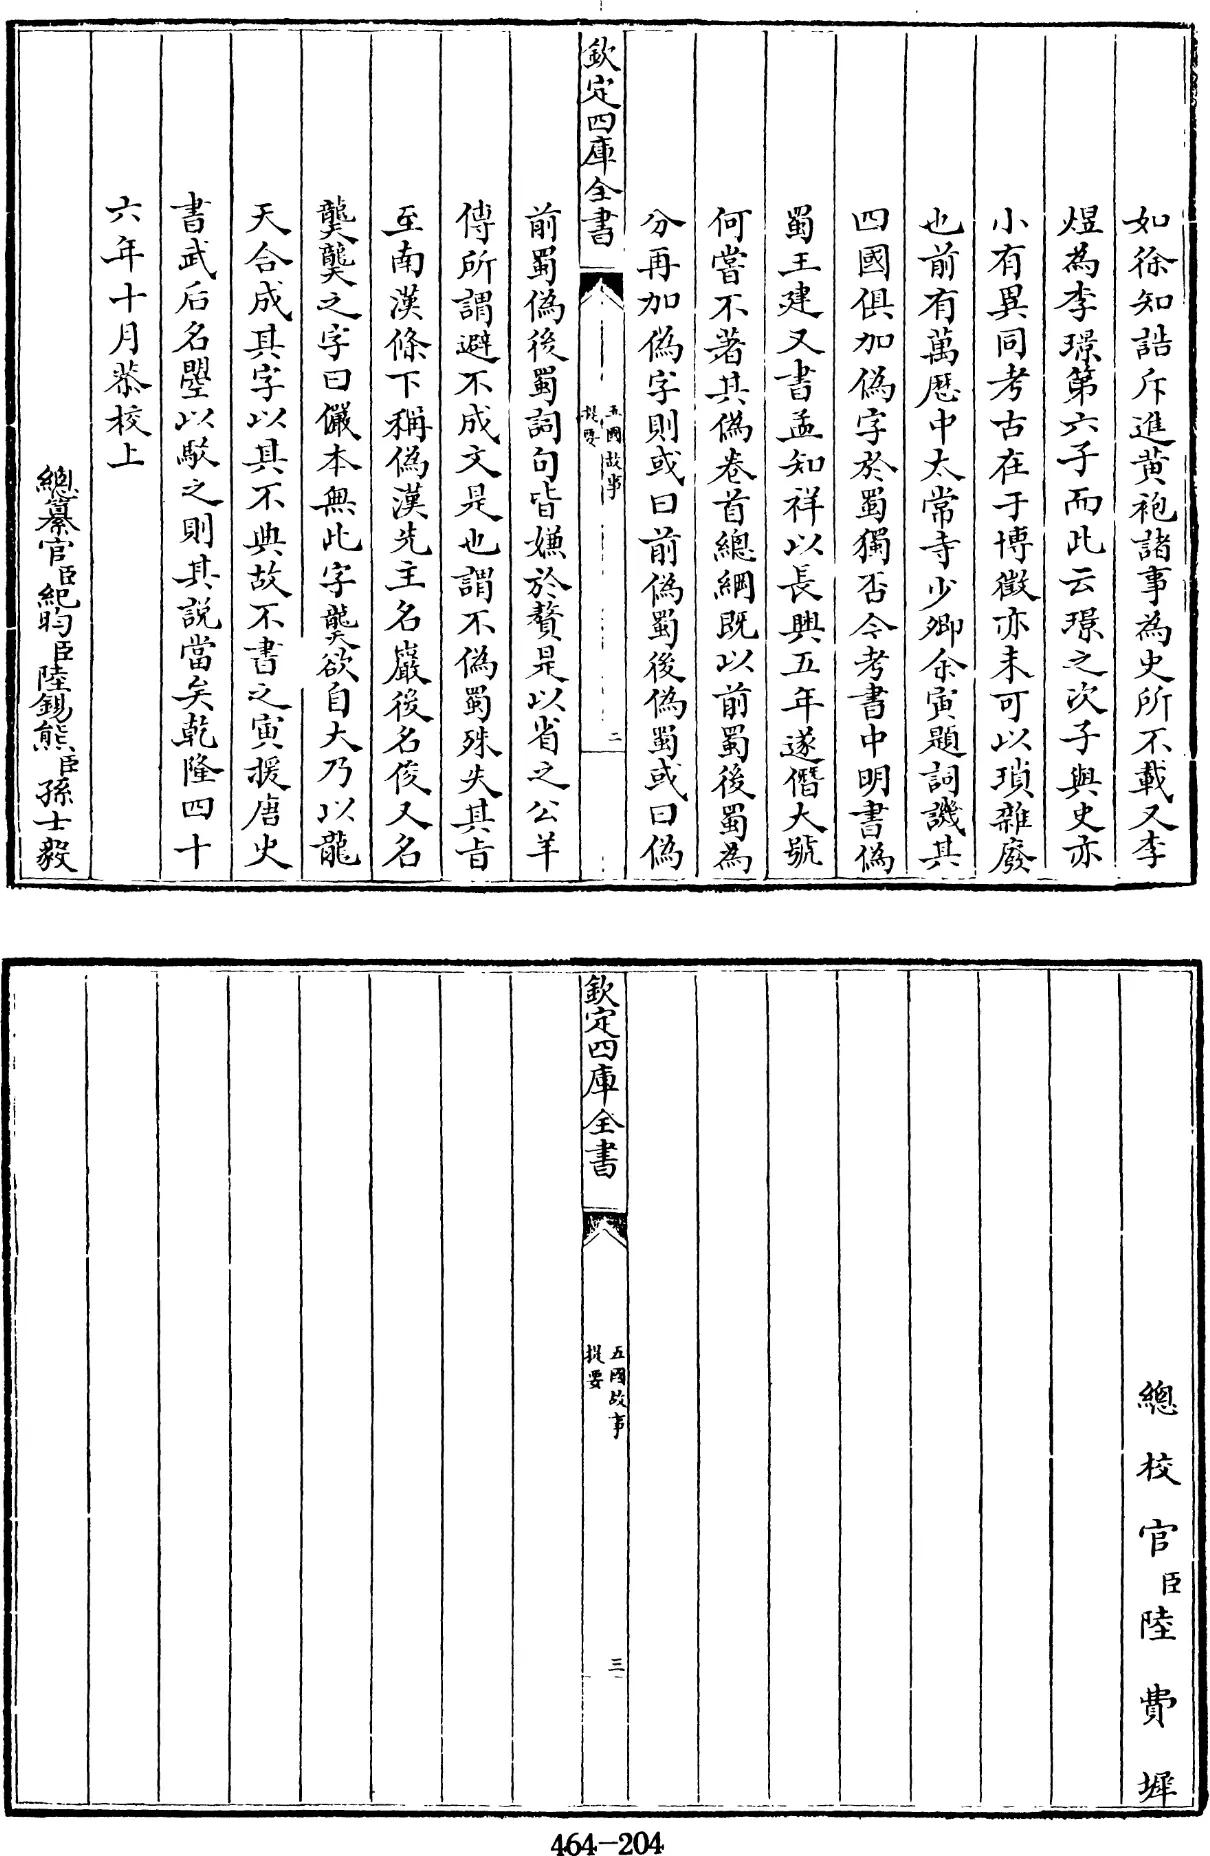 如徐知誥斥進黄袍諸事為史所不載又李
煜為李璟第六子而此云璟之次子與史亦
小有異同考古在于博徵亦未可以瑣雜廢
也前有萬厯中太常寺少卿余寅題詞譏其
四國俱加偽字於蜀獨否今考書中明書偽
蜀王建又書孟知祥以長興五年遂僭大號
何嘗不著其偽卷首總綱既以前蜀後蜀為
分再加偽字則或曰前偽蜀後偽蜀或曰偽
欽定四庫全書
五國故事
提要
二
前蜀偽後蜀詞句皆嫌於贅是以省之公羊
傳所謂避不成文是也謂不偽蜀殊失其旨
至南漢條下稱偽漢先主名巖後名俊又名
龑龑之字曰儼本無此字龑欲自大乃以龍
天合成其字以其不典故不書之寅援唐史
書武后名曌以駁之則其説當矣乾隆四十
六年十月恭校上
總纂官臣紀昀臣陸錫熊臣孫士毅
總校官臣陸費墀
欽定四庫全書
五國故事
提要
三
464-204